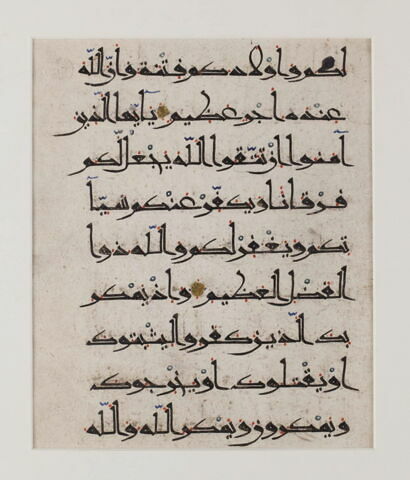 لكم واولادكم فتنة وانّ الله
عنده اجر عظيم يايها الذين
آمنوا ان تتّقوا الله يجعل لّكم
فرقانا ويكفّر عنكم سيّآ
تكم ويغفر لكم والله ذوا
الفضل العظيم واذ يمكر
بك الّذين كفروا ليثبتوك
او يقتلوك او يخرجوك
ويمكرون ويمكر الله والله